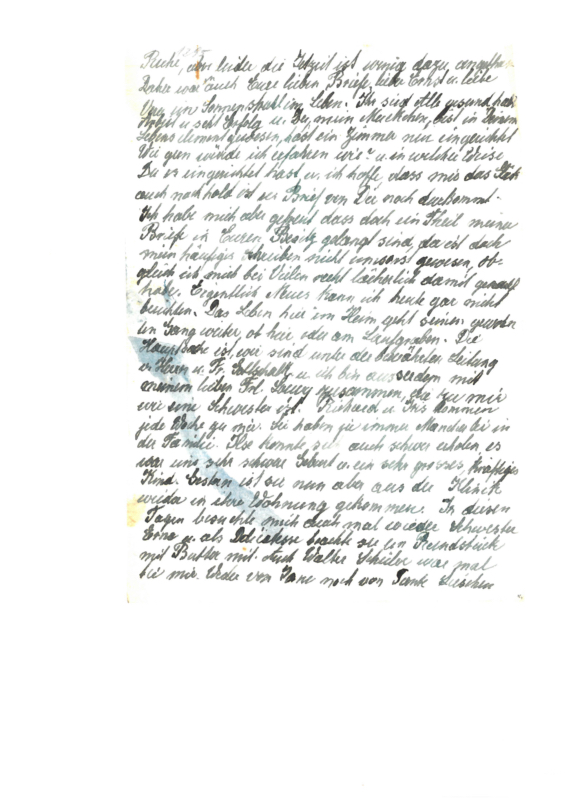 Ruhe, aber leider die Jetztzeit ist wenig dazu angethan.
Daher war auch Eure lieben Briefe, liebe Erna u. liebe
ein Sonnenstrahl im Leben. Ihr seid Alle gesund, habt
Arbeit u. seht Erfolg u. Du, mein Muckchen, bist in Deinem
Lebenselement gewesen, hast ein Zimmer neu eingerichtet
Wie gern würde ich erfahren wie? u. in welcher Weise
Du es eingerichtet hast u. ich hoffe, dass mir das Glück
auch noch hold ist u. der Brief von Dir noch durchkommt.
Ich habe mich aber gefreut dass doch ein Theil meiner
Briefe in Euren Besitz gelangt sind, da ist doch
mein häufiges schreiben nicht umsonst gewesen, ob-
gleich ich mich bei Vielen recht lächerlich damit gemacht
habe. Eigentlich Neues kann ich heute gar nicht
berichten. Das Leben hier im Heim geht seinen gewohn-
ten Gang weiter, ob hier oder am Laufgraben. Die
Hauptsache ist, wir sind unter der bewährten Leitung
v. Herrn u. Fr. u. ich bin ausserdem mit
meinem lieben Frl. Löwy zusammen, die zu mir
wie eine Schwester ist. Richard u. Iris kommen
jede Woche zu mir. Sie haben ja immer Mancherlei in
der Familie. Ilse konnte sich auch schwer erholen es
war eine sehr schwere Geburt u. ein sehr grosses, kräftiges
Kind. Gestern ist sie nun aber aus der Klinik
wieder in ihre Wohnung gekommen. In diesen
Tagen besuchte mich auch mal wieder Schwester
Erna u. als Delikatesse brachte sie ein Rundstück
mit Butter mit. Auch Walter Schüler war mal
bei mir. Weder von Jane noch von Tante Lieschen